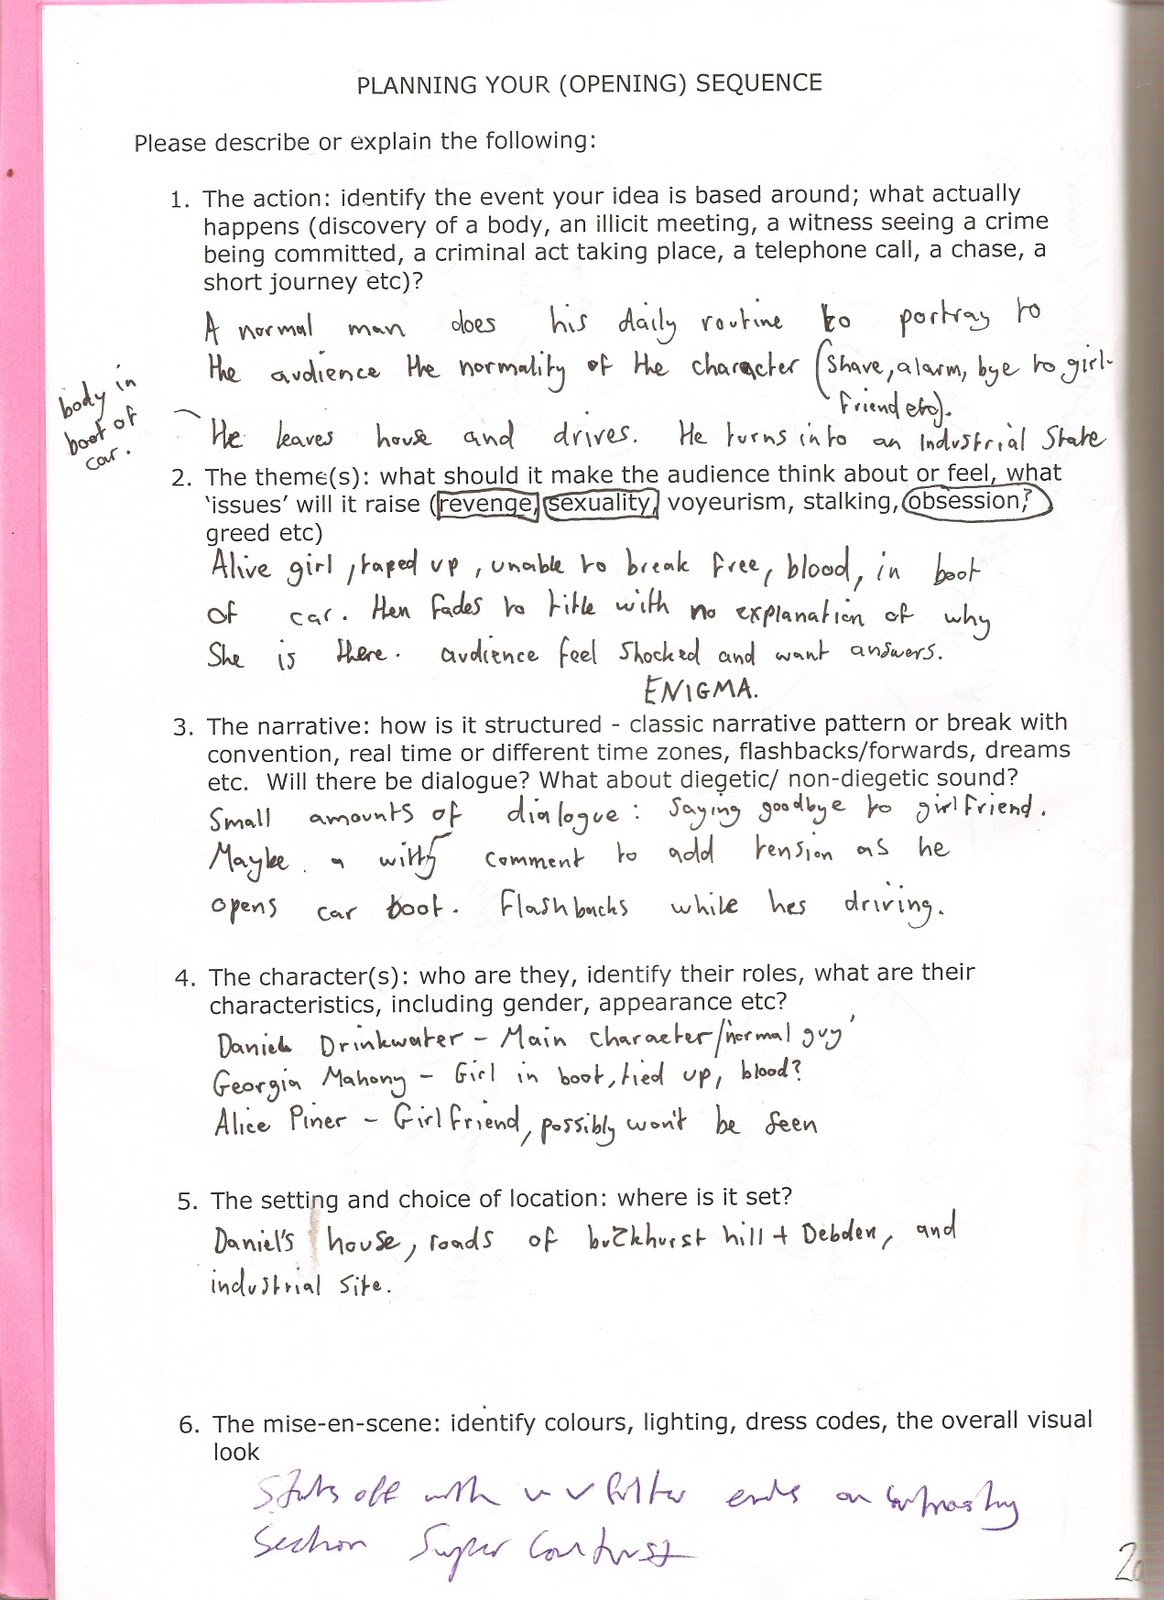 PLANNING YOUR (OPENING) SEQUENCE
Please describe or explain the following:
1. The action: identify the event your idea is based around; what actually
happens (discovery of a body, an illicit meeting, a witness seeing a crime
being committed, a criminal act taking place, a telephone call, a chase, a
short journey etc)?
A normal man does his daily routine to portray to
the audience the normality of the character (shave, alarm, bye to girl-
friend etc).
body in
boot of
car.
He leaves house and drives. He turns into an Industrial State
2. The theme(s): what should it make the audience think about or feel, what
‘issues’ will it raise (revenge, sexuality, voyeurism, stalking, obsession,?
greed etc)
Alive girl, taped up, unable to break free, blood, in boot
of car. then fades to title with no explanation of why
She is there. audience feel shocked and want answers.
ENIGMA.
3. The narrative: how is it structured - classic narrative pattern or break with
convention, real time or different time zones, flashbacks/forwards, dreams
etc. Will there be dialogue? What about diegetic/ non-diegetic sound?
Small amounts of dialogue: Saying goodbye to girlfriend.
Maybe a witty comment to add tension as he
opens car boot. Flashbacks while hes driving.
4. The character(s): who are they, identify their roles, what are their
characteristics, including gender, appearance etc?
Daniel Drinkwater - Main character/'normal guy'
Georgia Mahony - Girl in boot, tied up, blood?
Alice Piner - Girlfriend, possibly won't be seen
5. The setting and choice of location: where is it set?
Daniel's house, roads of buckhurst hill + Debden, and
industrial site.
6. The mise-en-scene: identify colours, lighting, dress codes, the overall visual
look
Starts off with filter ends on contrasting
Section Super Contrast